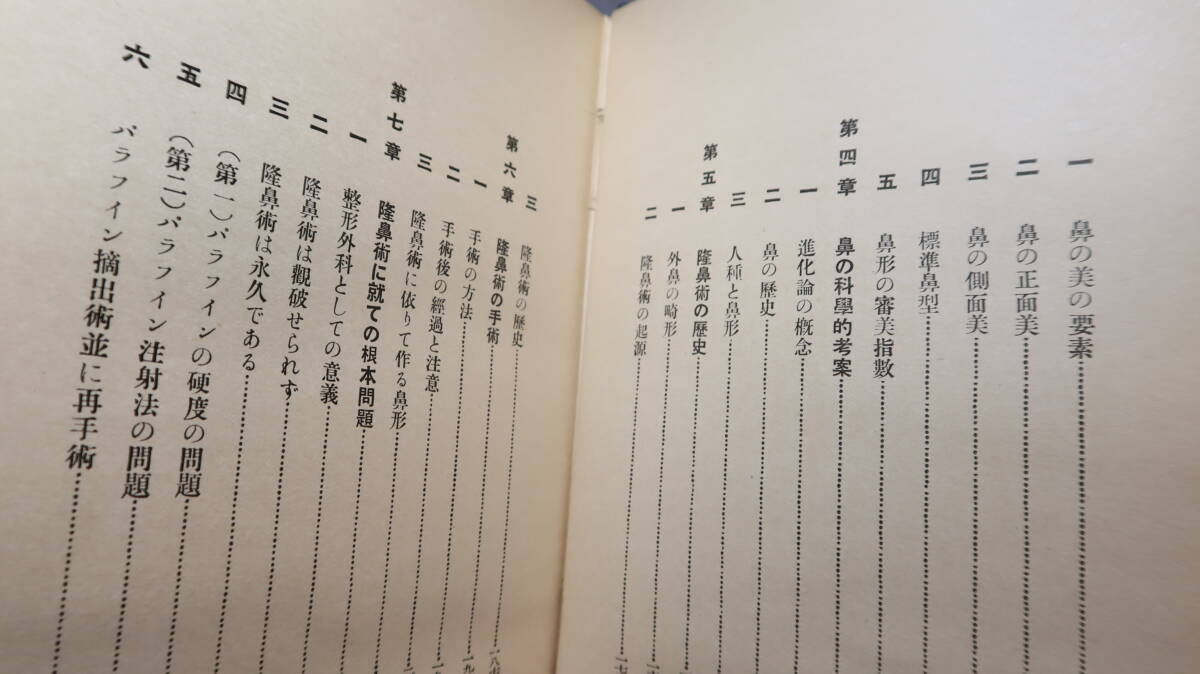 一 鼻の美の要素
二 鼻の正面美
三 鼻の側面美
四 標準鼻型
五 鼻形の審美指數
第四章 鼻の科學的考案
一 進化論の槪念
二 鼻の歷史
三 人種と鼻形
第五章 隆鼻術の歷史
一 外鼻の畸形
二 隆鼻術の起源
三 隆鼻術の歷史
第六章 隆鼻術の手術
一 手術の方法
二 手術後の經過と注意
三 隆鼻術に依りて作る鼻形
第七章 隆鼻術に就ての根本問題
一 整形外科としての意義
二 隆鼻術は觀破せられず
三 隆鼻術は永久である
四 (第一)パラフインの硬度の問題
五 (第二)パラフイン注射法の問題
六 パラフイン摘出術並に再手術